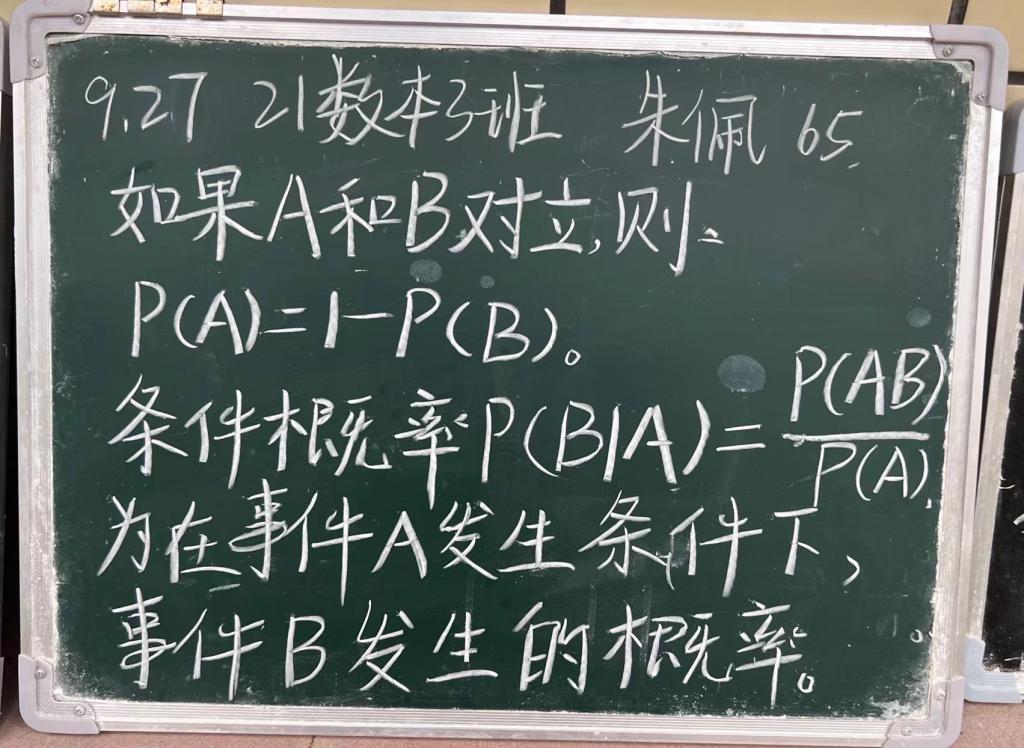 9.27 21数本3班 朱佩 65
如果A和B对立,则:
P(A)=1-P(B)。
条件概率P(B|A)=P(AB)/P(A)
为在事件A发生条件下,
事件B发生的概率。